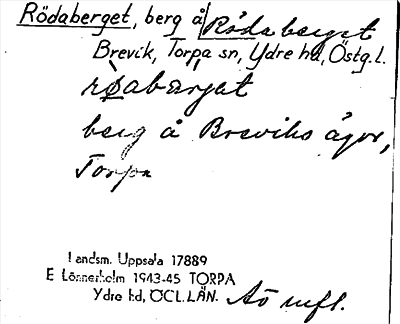 Rödaberget, berg å Rödaberget
Brevik, Torpa sn, Ydre hd, Östg. l.
berg å Breviks ägor,
Torpa
Landsm. Uppsala 17889
E Lönnerholm 1943-45 TORPA
Ydre hd, ÖGL. LÄN. Aö mfl.